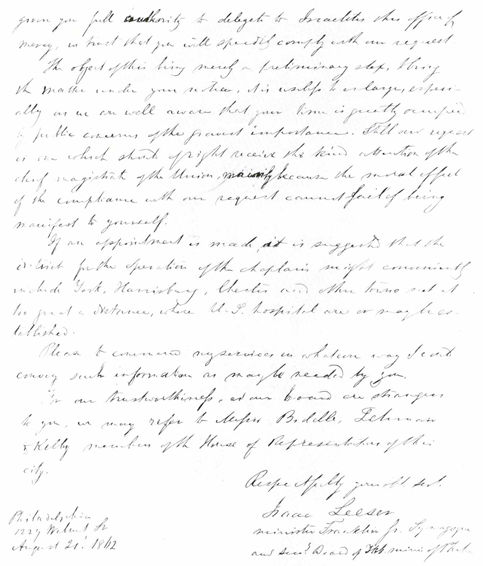 given you full authority to delegate to Israelites this office of
mercy, we trust that you will speedily comply with our request
The object of this being merely a preliminary step, to bring
the matter under your notice, it is useless to enlarge, especi-
ally as we are well aware that your time is greatly occupied
by public concerns of the gravest importance. Still our request
is one which should of right receive the kind attention of the
chief magistrate of the Union, mainly because the moral effect
of the compliance with our request cannot fail of being
manifest to yourself.
If an appointment is made, it is suggested that the
district for the operation of the chaplain might conveniently
include York, Harrisburg, Chester and other towns not at
too great a distance, where U.S. hospital are or may be es-
tablished.
Please to command my services in whatever way I could
convey such information as may be needed by you.
For our trustworthiness, as our board are strangers
to you, we may refer to Messrs Biddle, Lehman
& Kelly members of the House of Representatives of this
city.
Respectfully your obt servt.
Isaac Leeser
minister Franklin Sr. Synagogue
and Board of
Philadelphia
1227 Walnut St
August 21. 1862